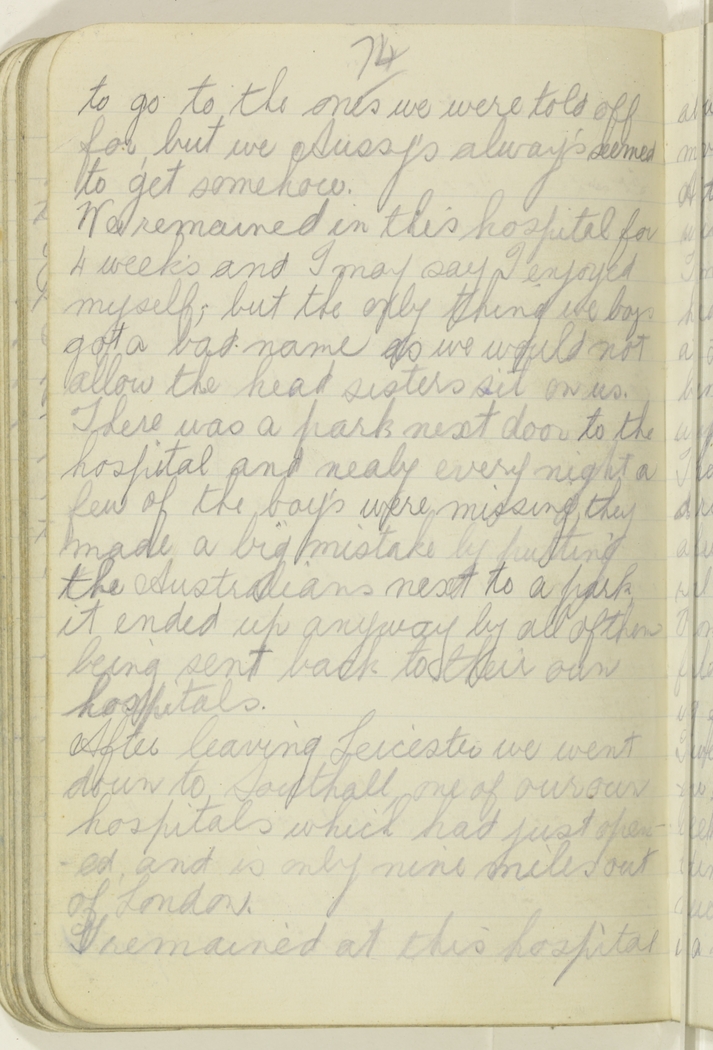 74
to go to the ones we were told off
for, but we Aussy's always seemed
to get somehow.
We remained in this hospital for
4 weeks and I may say I enjoyed
myself; but the only thing we boys
got a bad name as we would not
allow the head sisters sit on us.
There was a park next door to the
hospital and nealy every night a
few of the boy's were missing they
made a big mistake by putting
the Australians next to a park
it ended up anyway by all of them
being sent back to their own
hospitals.
After leaving Leicester we went
down to Southall one of our own
hospitals which had just open-
-ed, and is only nine miles out
of London.
I remained at this hospital